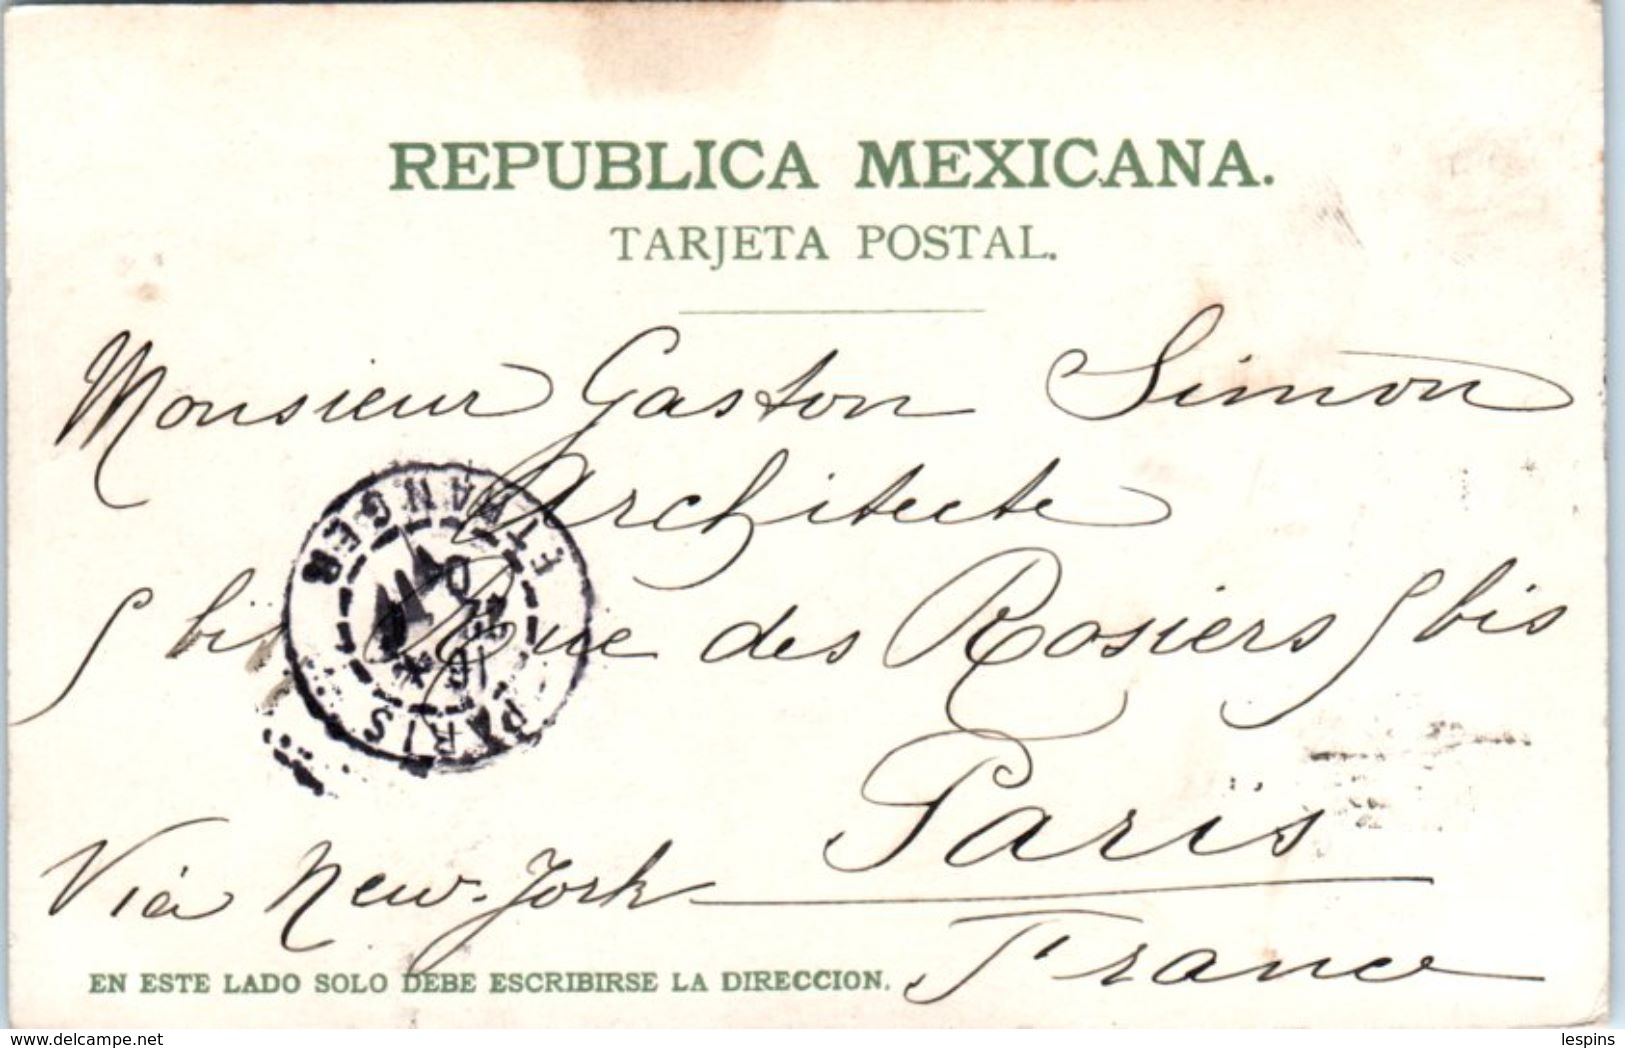 REPUBLICA MEXICANA.
TARJETA POSTAL.
Monsieur Gaston Simon
Architecte
5 bis Rue des Rosiers 5 bis
Paris
Via New-York
France
EN ESTE LADO SOLO DEBE ESCRIBIRSE LA DIRECCION.
PARIS
ETRANGER
16
delcampe.net
lespins